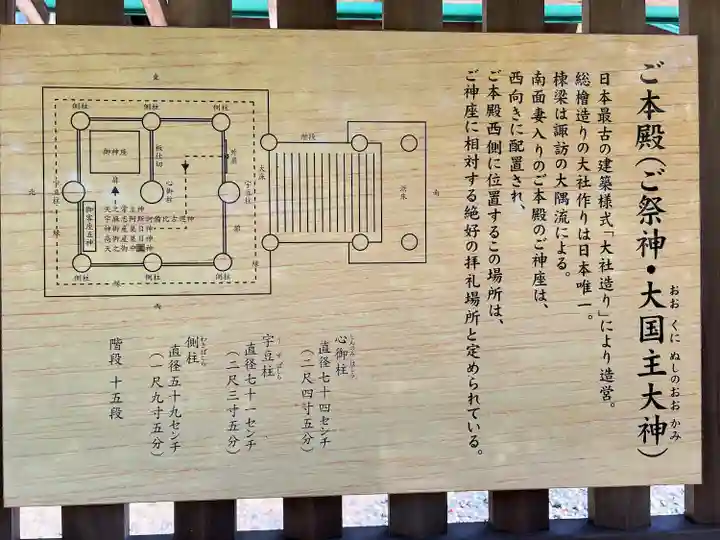 ご本殿(ご祭神・大国主大神)
おお くに ぬしのおお かみ
日本最古の建築様式「大社造り」により造営。
総檜造りの大社作りは日本唯一。
棟梁は諏訪の大隅流による。
南面妻入りのご本殿のご神座は、
西向きに配置され、
ご本殿西側に位置するこの場所は、
ご神座に相対する絶好の拝礼場所と定められている。
心御柱
直径七十四センチ
(二尺四寸五分)
宇豆柱
直径七十一センチ
(二尺三寸五分)
側柱
直径五十九センチ
(一尺九寸五分)
階段 十五段
東
側柱
側柱
側柱
御神座
板仕切
扉
大床
階段
浜床
南
北
宇豆柱
心御柱
宇豆柱
御客座五神
天之常立神
神御産巣日神
高御産巣日神
縁
縁
縁
側柱
側柱
側柱
西